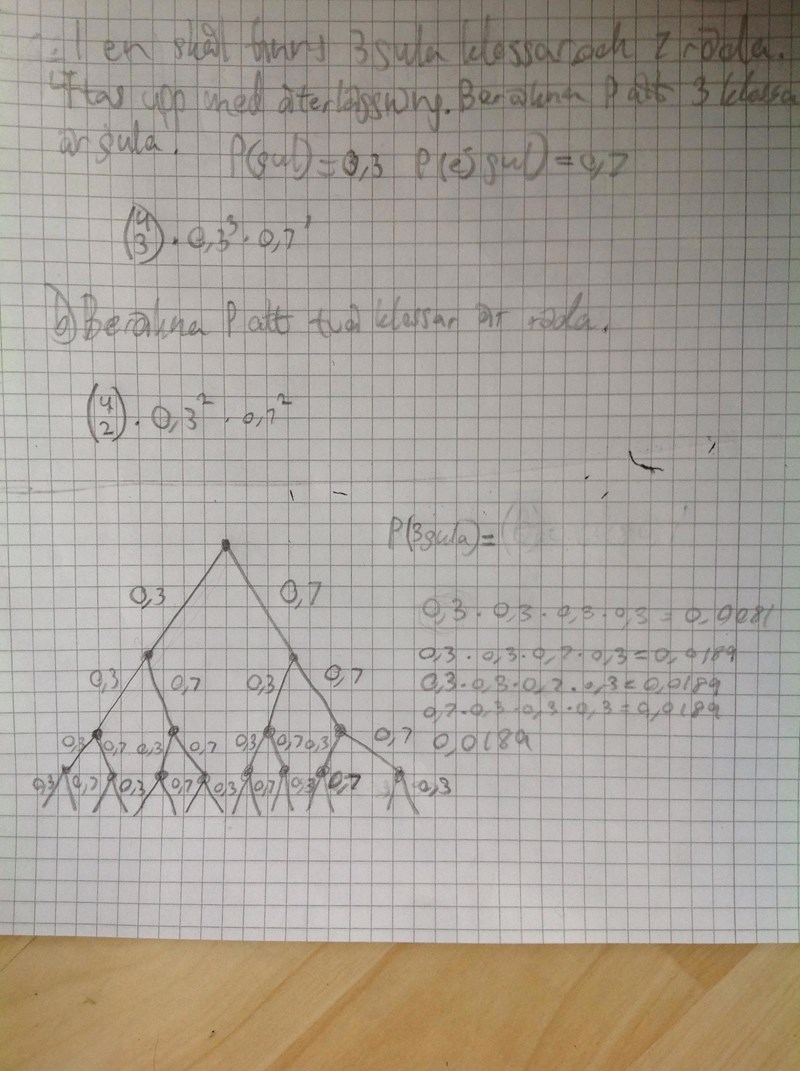 I en skål finns 3 gula klossar och 7 röda.
4 tas upp med återläggning. Beräkna P att 3 klossar
är gula. P(gul) = 0,3 P(ej gul) = 0,7
(4 3) · 0,3³ · 0,7¹
b) Beräkna P att två klossar är röda.
(4 2) · 0,3² · 0,7²
P(3 gula) =
0,3 0,7
0,3 · 0,3 · 0,3 · 0,3 = 0,0081
0,3 · 0,3 · 0,7 · 0,3 = 0,0189
0,3 0,7 0,3 0,7
0,3 · 0,3 · 0,7 · 0,3 = 0,0189
0,7 · 0,3 · 0,3 · 0,3 = 0,0189
0,3 0,7 0,3 0,7 0,3 0,7 0,3 0,7
0,0189
0,3 0,7 0,3 0,7 0,3 0,7 0,3 0,7 0,3